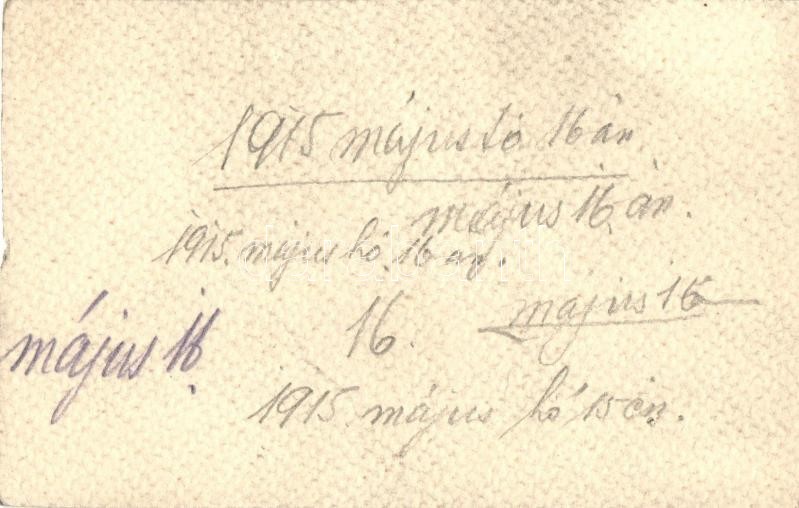 1915 május hó 16 án.
május 16 án.
1915. május hó 16 án.
május 16
16.
május 16
1915. május hó 15 én.